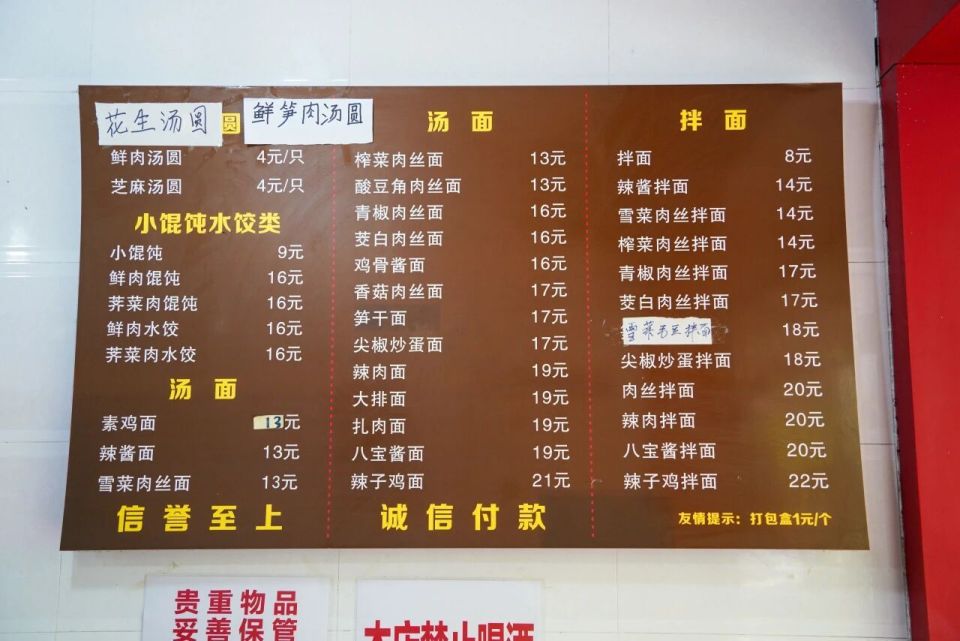 花生汤圆 圆 鲜笋肉汤圆
鲜肉汤圆 4元/只
芝麻汤圆 4元/只
小馄饨水饺类
小馄饨 9元
鲜肉馄饨 16元
荠菜肉馄饨 16元
鲜肉水饺 16元
荠菜肉水饺 16元
汤面
素鸡面 13元
辣酱面 13元
雪菜肉丝面 13元
信誉至上
汤面
榨菜肉丝面 13元
酸豆角肉丝面 13元
青椒肉丝面 16元
茭白肉丝面 16元
鸡骨酱面 16元
香菇肉丝面 17元
笋干面 17元
尖椒炒蛋面 17元
辣肉面 19元
大排面 19元
扎肉面 19元
八宝酱面 19元
辣子鸡面 21元
诚信付款
拌面
拌面 8元
辣酱拌面 14元
雪菜肉丝拌面 14元
榨菜肉丝拌面 14元
青椒肉丝拌面 17元
茭白肉丝拌面 17元
雪菜毛豆拌面 18元
尖椒炒蛋拌面 18元
肉丝拌面 20元
辣肉拌面 20元
八宝酱拌面 20元
辣子鸡拌面 22元
友情提示：打包盒1元/个
贵重物品
妥善保管
本店禁止喝酒